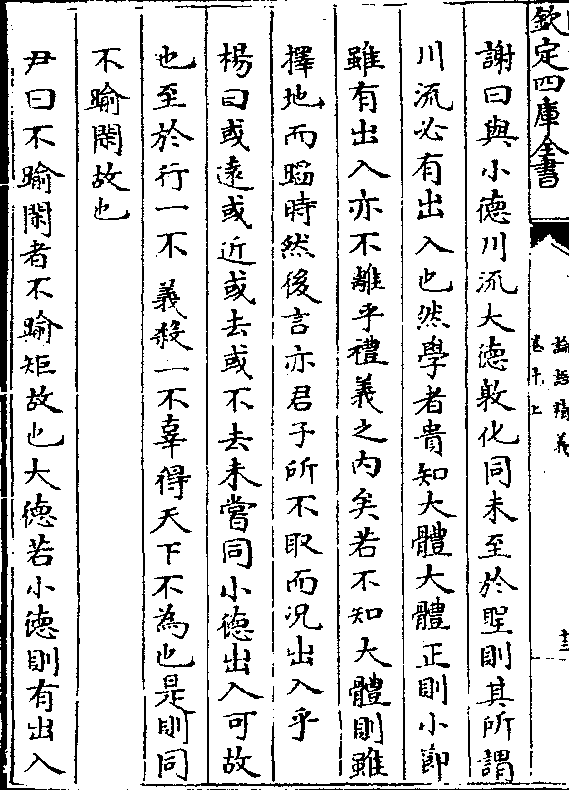 欽定四庫全書
論語精義
卷十上
謝曰與小德川流大德敦化同未至於聖則其所謂
川流必有出入也然學者貴知大體大體正則小節
雖有出入亦不離乎禮義之内矣若不知大體則雖
擇地而蹈時然後言亦君子所不取而況出入乎
楊曰或遠或近或去或不去未嘗同小德出入可故
也至於行一不義殺一不辜得天下不為也是則同
不踰閑故也
尹曰不踰閑者不踰矩故也大德若小德則有出入